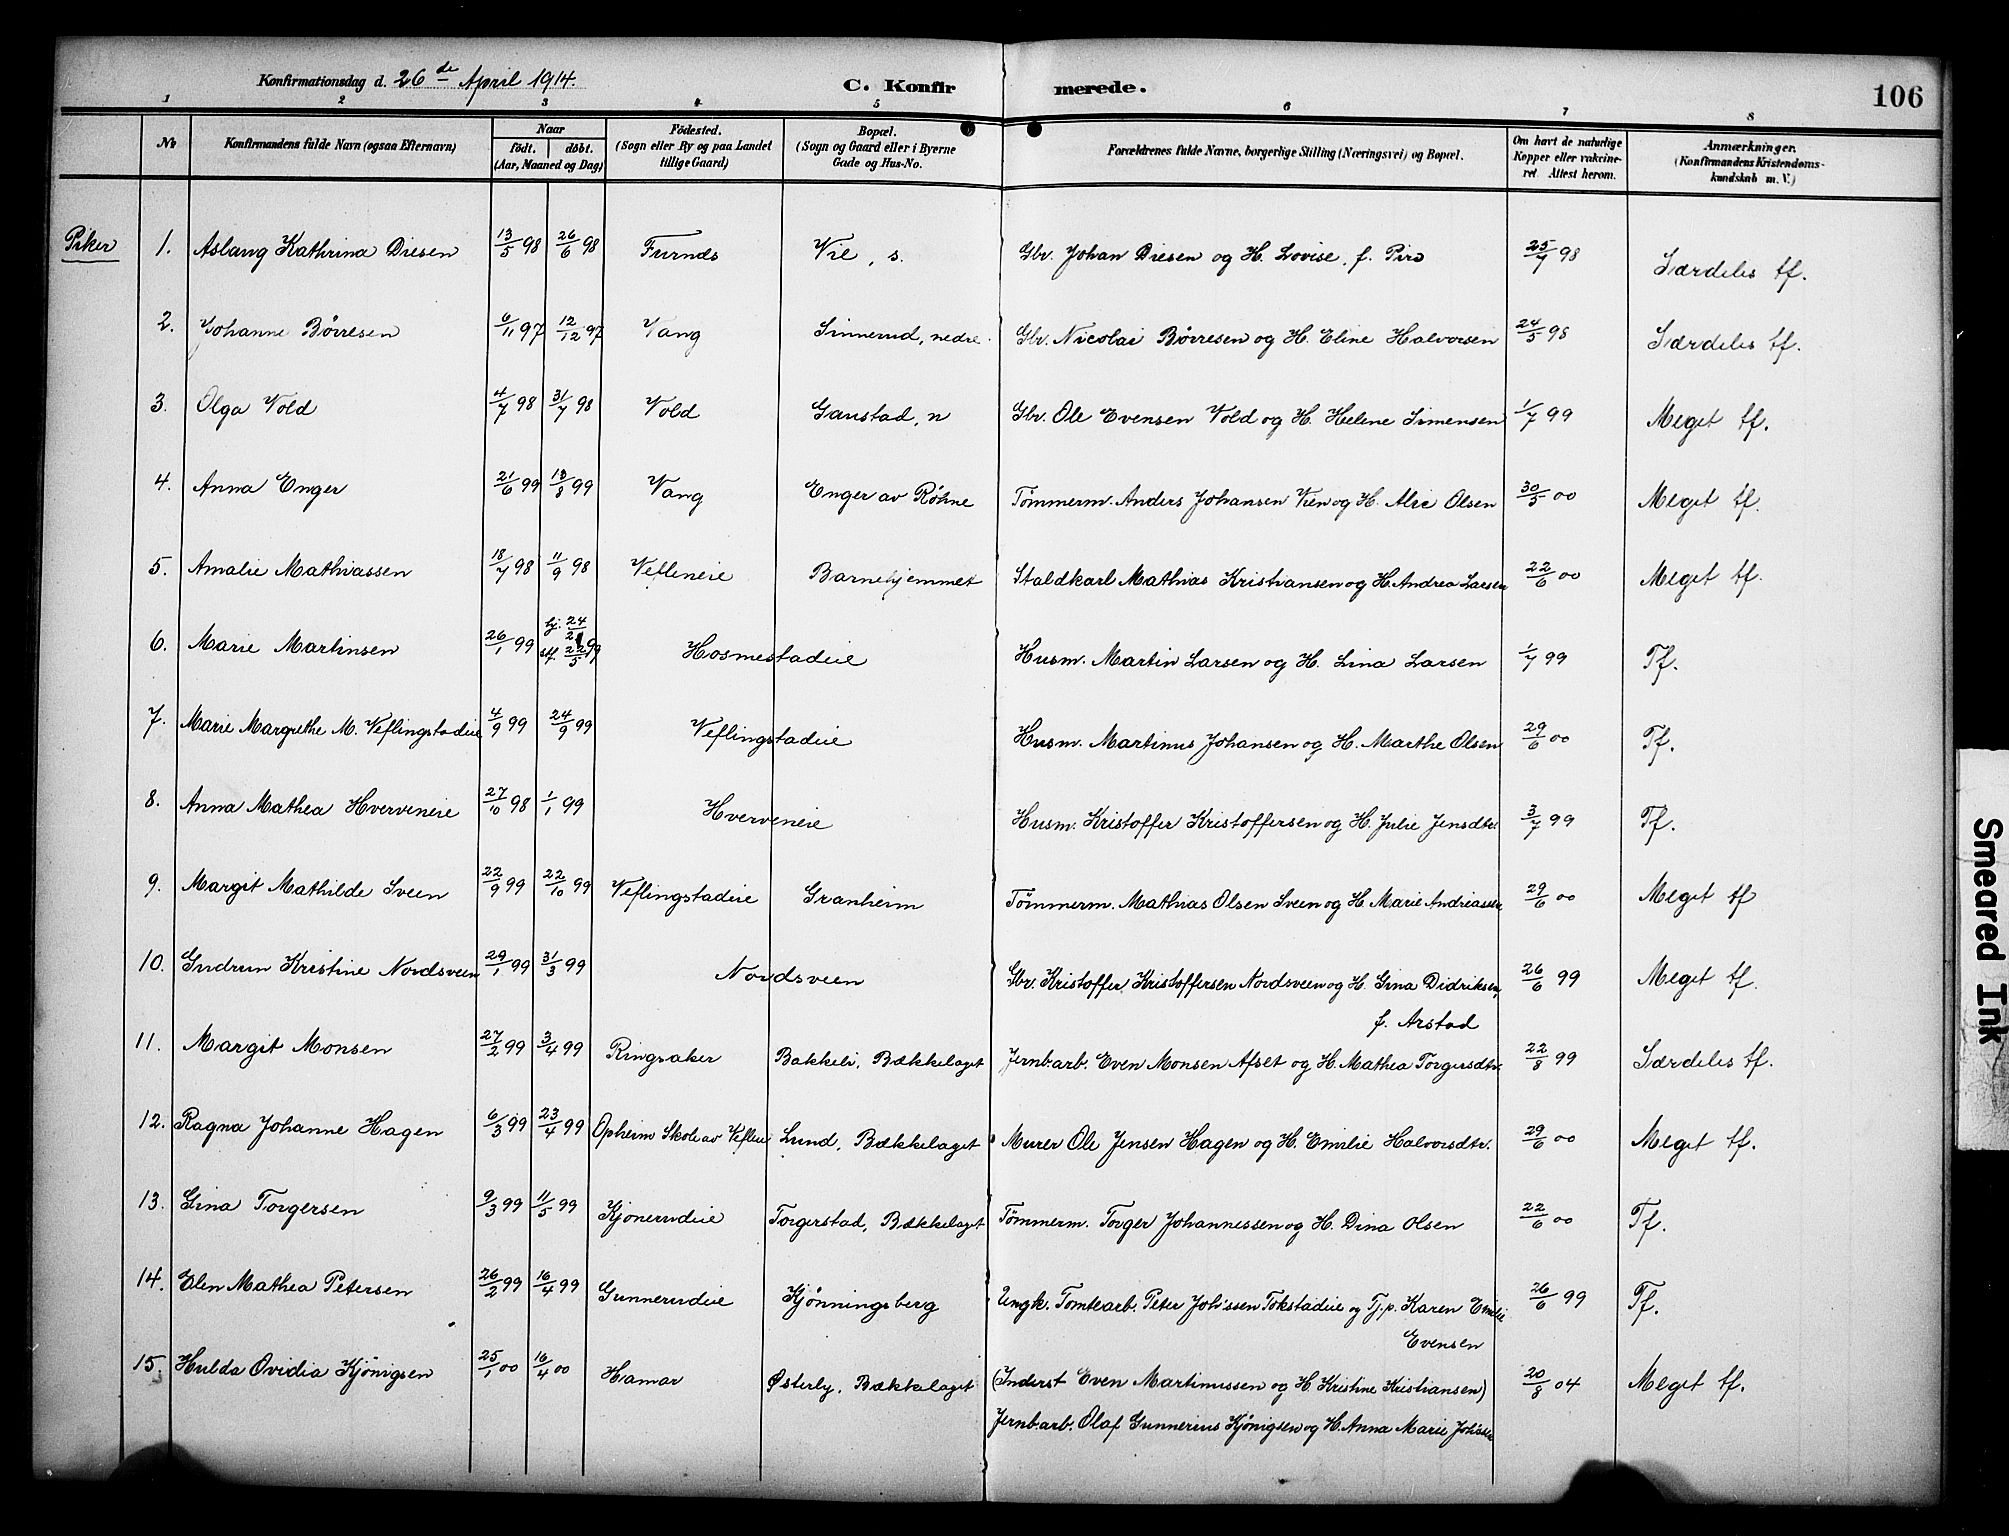 Konfirmationsdag d. 26de April 1914.
C. Konfirmerede.
106
1 2 3 4 5 6 7 8
No Konfirmandens fulde Navn (ogsaa Efternavn) Naar født. døbt. (Aar, Maaned og Dag) Födested. (Sogn eller By og paa Landet tillige Gaard) Bopæl. (Sogn og Gaard eller i Byerne Gade og Hus-No. Forældrenes fulde Navne, borgerlige Stilling (Næringsvei) og Bopæl. Om havt de naturlige Kopper eller vakcineret Attest herom. Anmærkninger. (Konfirmandens Kristendomskundskab m. V.)
Piker 1. Aslaug Kathrina Diesen 13/5 98 26/6 98 Furnds Vie, s. Gbr. Johan Diesen og H. Lovise, f. Piro 25/7 98 Særdeles tf.
2. Johanne Børresen 6/11 97 12/12 97 Vang Sinnerud, nedre Gbr. Nicolai Børresen og H. Eline Halvorsen 24/5 98 Særdeles tf.
3. Olga Vold 4/7 98 31/7 98 Vold Gaustad, n Gbr. Ole Evensen Vold og H. Helene Simensen 1/7 99 Meget tf.
4. Anna Enger 21/6 99 13/8 99 Vang Enger av Røhne Tømmerm. Anders Johansen Vien og H. Alie Olsen 30/5 00 Meget tf.
5. Amalie Mathiassen 18/7 98 11/9 98 Vefleneie Barnehjemmet Staldkarl Mathias Kristiansen og H. Andrea Larsen 22/6 00 Meget tf.
6. Marie Martinsen 26/1 99 hj. 24/2 stf. 22/5 99 Hosmestadeie Husm. Martin Larsen og H. Lina Larsen 1/7 99 Tf.
7. Marie Margrethe M. Veflingstadeie 4/9 99 24/9 99 Veflingstadeie Husm. Martinus Johansen og H. Marthe Olsen 29/6 00 Tf.
8. Anna Mathea Hverveneie 27/10 98 1/1 99 Hverveneie Husm. Kristoffer Kristoffersen og H. Julie Jensdtr. 3/7 99 Tf.
9. Margit Mathilde Sveen 22/9 99 22/10 99 Veflingstadeie Granheim Tømmerm. Mathias Olsen Sveen og H. Marie Andreassen 29/6 00 Meget tf
10. Gudrun Kristine Nordsveen 29/1 99 31/3 99 Nordsveen Gbr. Kristoffer Kristoffersen Nordsveen og H. Gina Didriksen,
f. Arstad 26/6 99 Meget tf.
11. Margit Monsen 27/2 99 3/4 99 Ringsaker Bakkeli, Bækkelaget Jernb.arb. Even Monsen Afset og H. Mathea Torgersdtr. 22/8 99 Særdeles tf.
12. Ragna Johanne Hagen 6/3 99 23/4 99 Opheim Skole av Veflen Lund, Bækkelaget Murer Ole Jensen Hagen og H. Emilie Halvorsdtr. 29/6 00 Meget tf.
13. Gina Torgersen 9/3 99 11/5 99 Kjonerudeie Torgerstad, Bækkelaget Tømmerm. Torger Johannessen og H. Dina Olsen 22/6 00 Tf.
14. Elen Mathea Petersen 26/2 99 16/4 99 Gunnerudeie Kjønningsberg Ungk. Tomtearb. Peter Joh'ssen Tokstadeie og Tj.p. Karen Emilie
Evensen 26/6 99 Tf.
15. Hulda Ovidia Kjønigsen 25/1 00 16/4 00 Hamar Østerly, Bækkelaget (Inderst Even Martinussen og H. Kristine Kristiansen) 20/8 04 Meget tf.
Jernb.arb. Olaf Gunnerius Kjønigsen og H. Anna Marie Joh'ssen
Smeared Ink